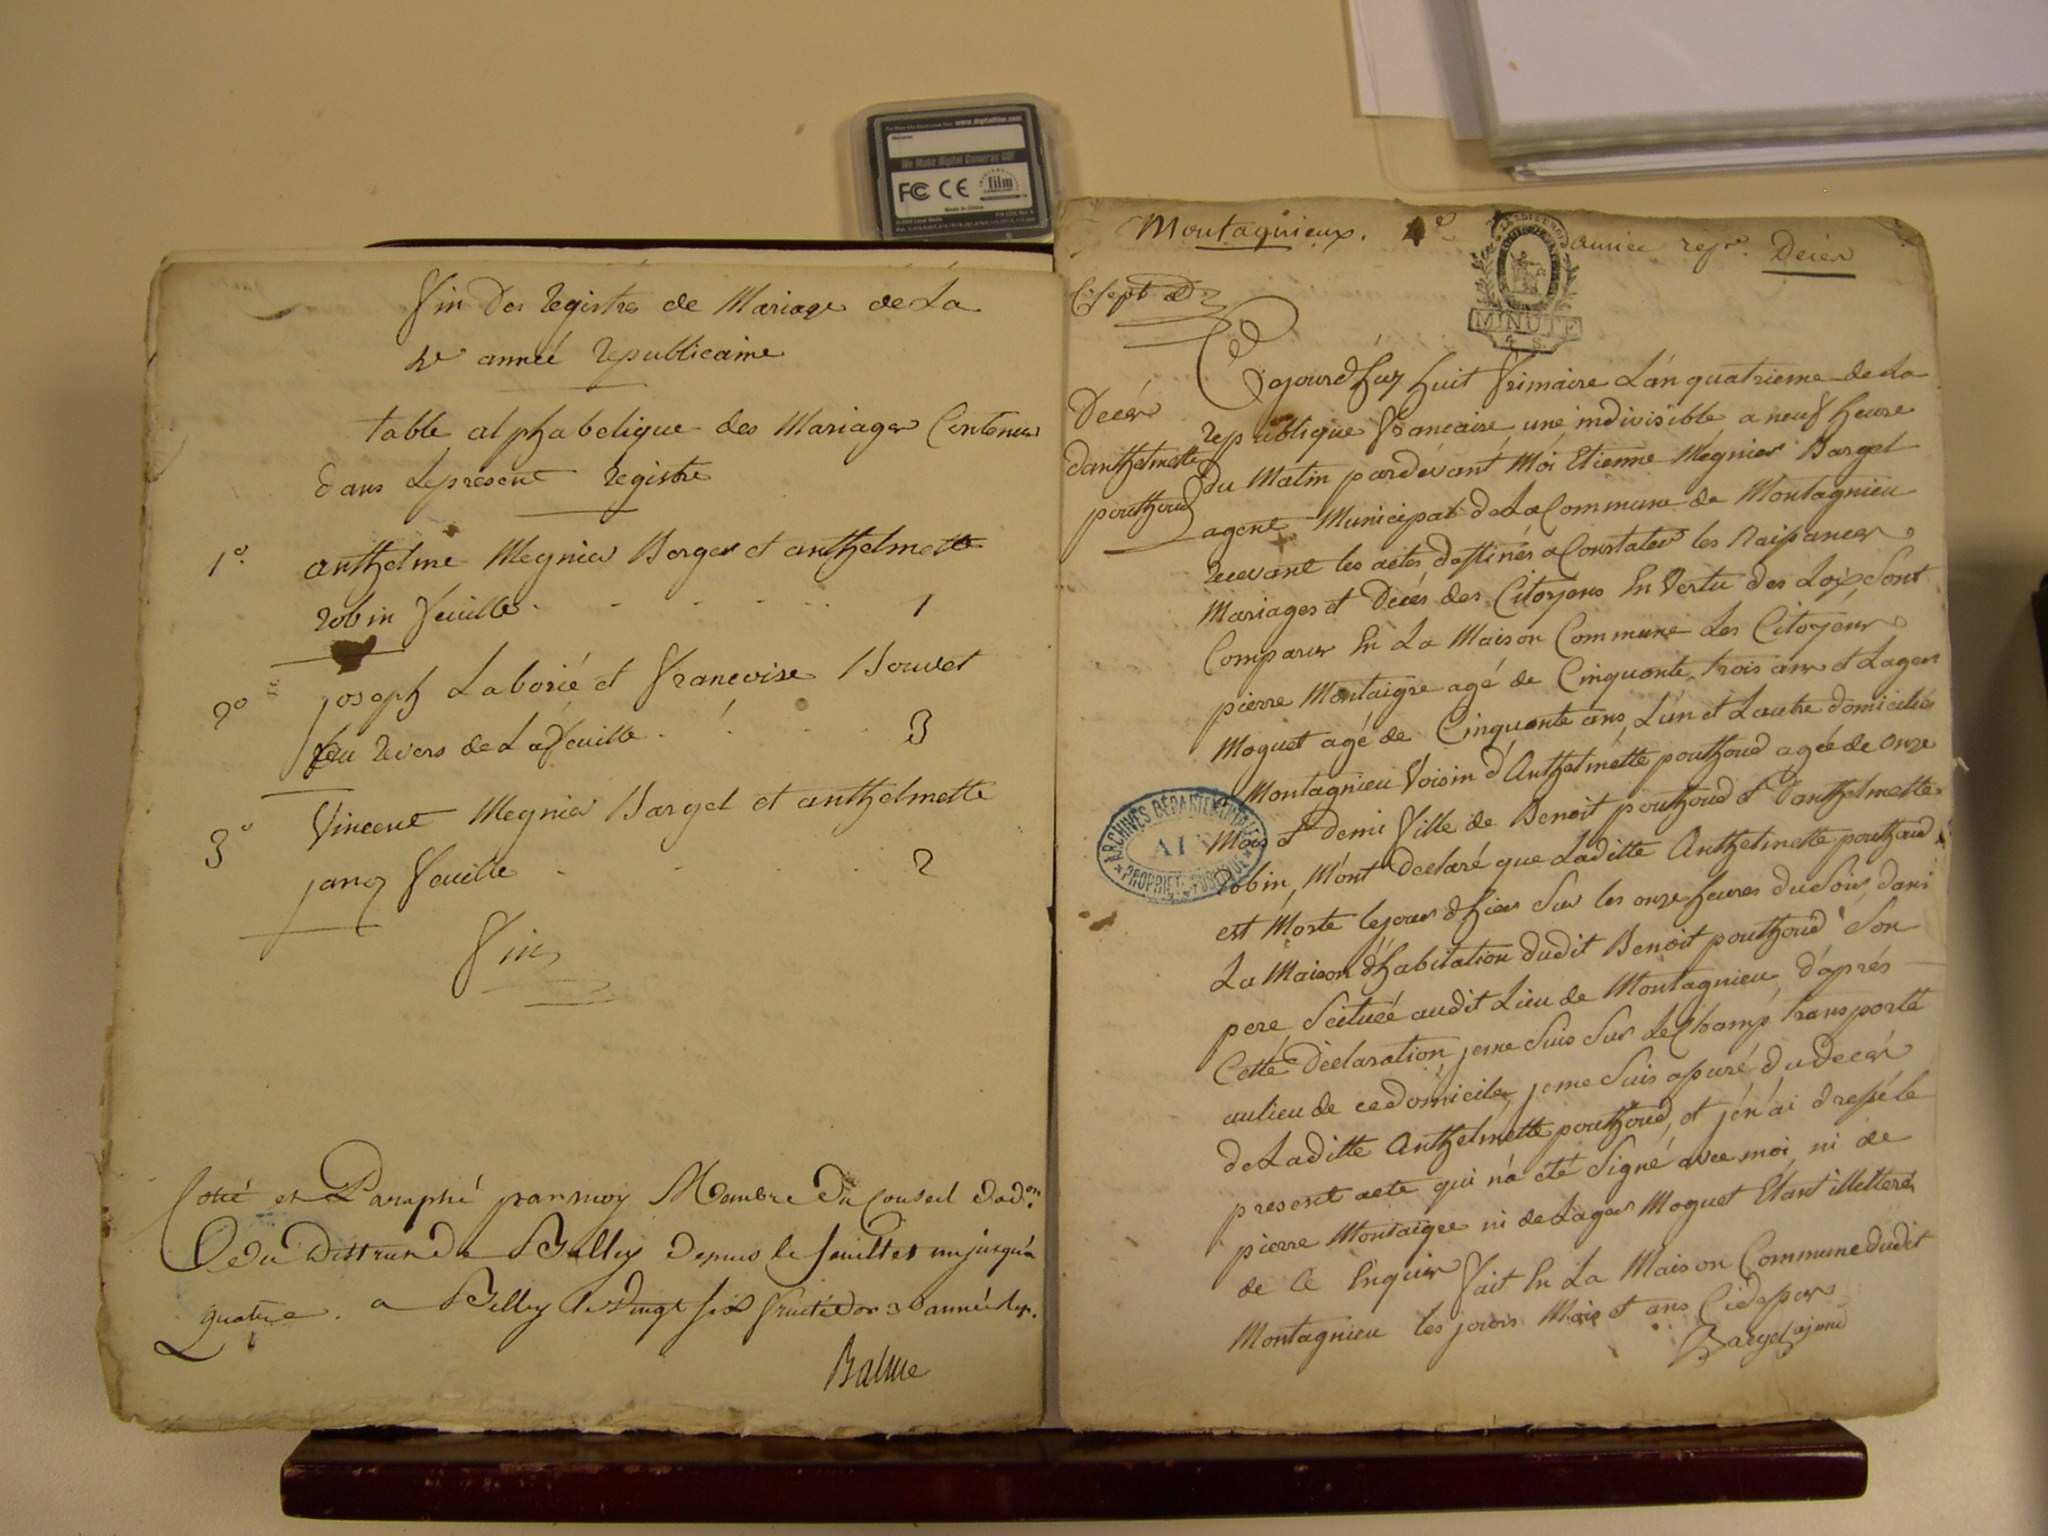 Fin Des Registres de Mariage de La
4e année Republicaine
table alphabetique des Mariages Contenus
dans Le present Registre
1° anthelme Megnier Barget et anthelmette
Robin feuille 1
2° joseph Laborié et francoise Bouvet
au Revers de La feuille 3
3° Vincent Megnier Bargel et anthelmette
janez feuille 2
Fin
Cotté et Paraphé par moy Membre du Conseil d'adon.
du district de Belley depuis le feuillet un jusqu'a
quatre. a Belley le vingt six fructidor 3e année rep.
Balme
www.digitalfilm.com
We Make digital Cameras GO!
FC CE film
Made in China
Montagnieux. 4e année repe. Décès
MINUTE
Décès
danthelmette
pouthoud
Cejourd'huy huit frimaire L'an quatrieme de La
republique francaise une indivisible a neuf heure
du Matin pardevant Moi Etienne Megnier Bargel
agent Municipal de La Commune de Montagnieu
recevant les actes destinés a Constater les Naissances,
Mariages et Décès des Citoyens En Vertu des Loix, Sont
Comparus En La Maison Commune Les Citoyens
pierre Montaigre agé de Cinquante trois ans et Lager
Moguet agé de Cinquante ans, L'un et L'autre domiciliés
Montagnieu Voisin d'Anthelmette pouthoud agée de onze
Mois et demi fille de Benoit pouthoud et D'anthelmette
Robin, M'ont declaré que Laditte Anthelmette pouthoud
est Morte le jour d'hier Sur les onze heures du Soir, dans
La Maison d'habitation dudit Benoit pouthoud Son
pere Scituée audit Lieu de Montagnieu, d'après
Cette Déclaration, je me Suis Sur Le Champ transporté
au lieu de ce domicile, je me Suis assuré du decès
de Laditte Anthelmette pouthoud, et j'en ai dressé le
present acte qui n'a été Signé avec moi, ni de
pierre Montaigre ni de Lager Moguet Etant illetterés
de ce Enquis fait En La Maison Commune dudit
Montagnieu les jours Mois et ans Cidessus
Bargel agent
ARCHIVES DÉPARTEMENTALES
AIN
PROPRIÉTÉ PUBLIQUE